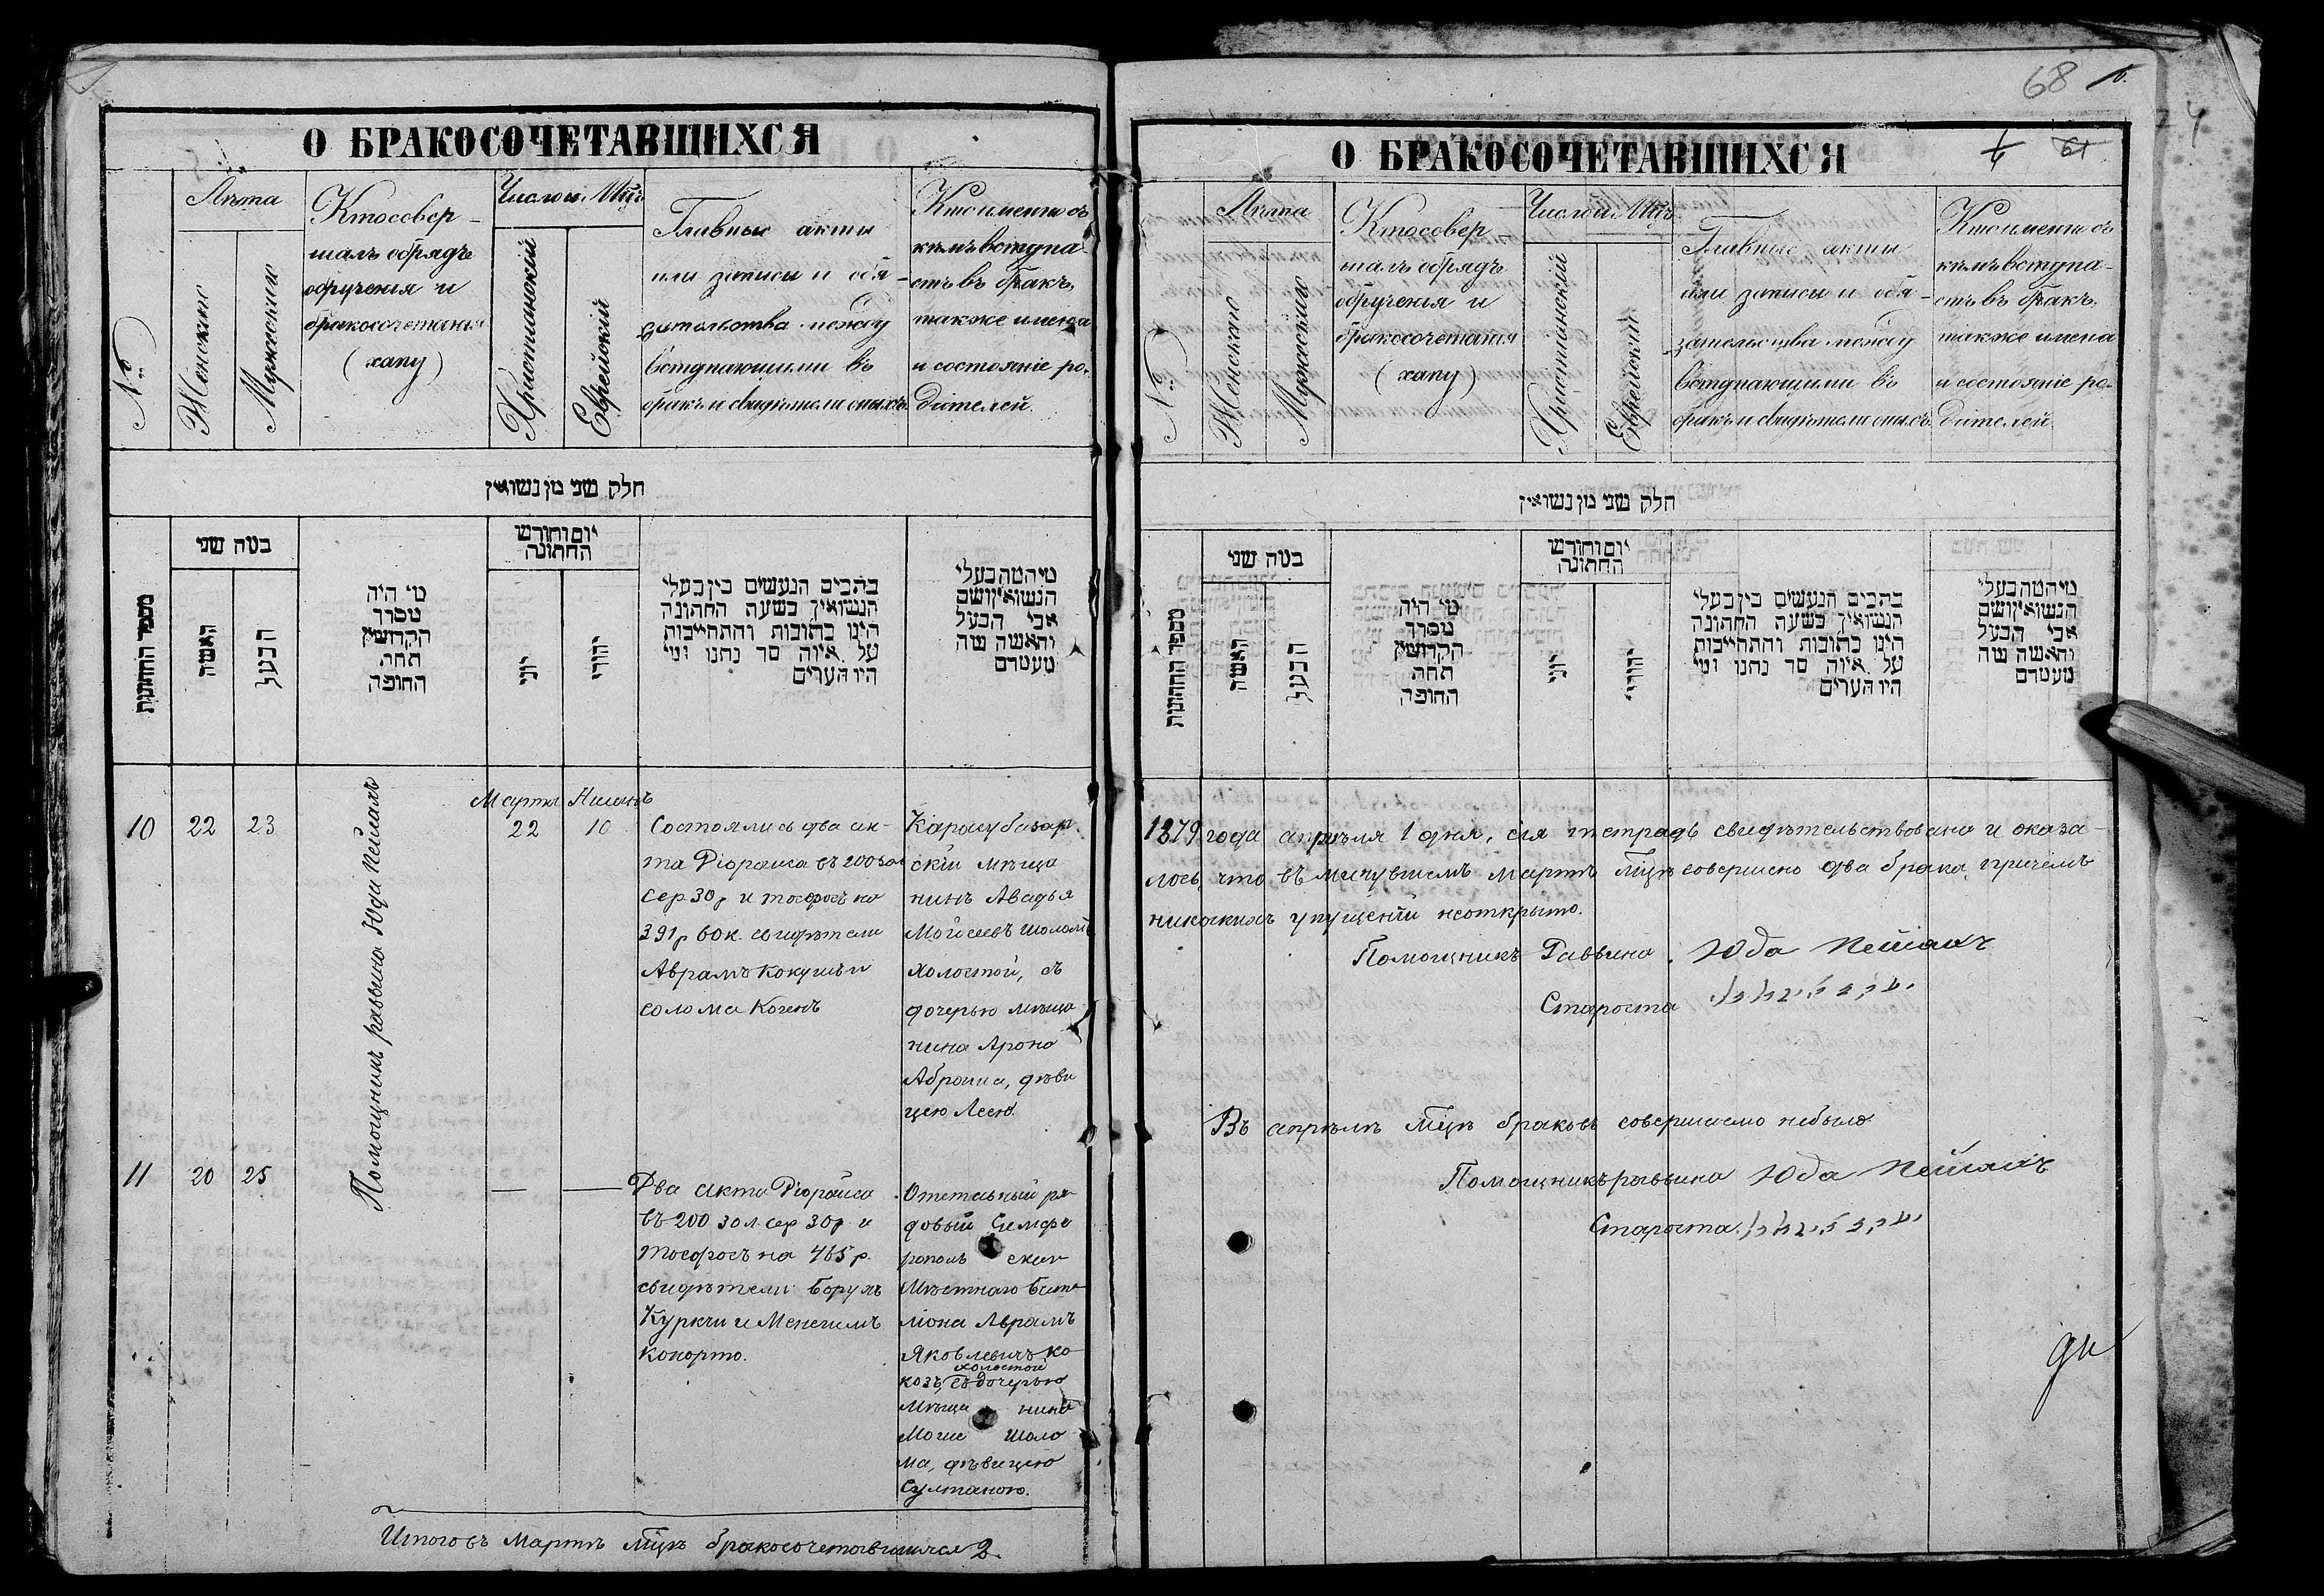 О БРАКОСОЧЕТАВШИХСЯ
№
Лѣта
Женскіе
Мужескіе
Кто совер-
шалъ обрядъ
обрученія и
бракосочетанія
(хапу)
Число и Мцъ
Христіанскій
Еврейскій
Главные акты
или записи и обя-
зательства между
вступающими въ
бракъ и свидѣтели оныхъ
Кто именно съ
кѣмъ вступа-
етъ въ бракъ,
также имена
и состояніе ро-
дителей.
חלק שני מן נשואין
מספר החתונות
כמה שני
האשה
הבעל
מי היה
מסדר
הקדושין
תחת
החופה
יום וחודש
החתונה
יוני
יהודי
כתבים הנעשים בין בעלי
הנשואין בשעה החתונה
היינו כתובות והתחייבות
על איזה סך נתנו ומי
היו העדים
מי המה בעלי
הנשואין ושם
אבי הבעל
והאשה מה
מעמדם
10
22
23
Помощникъ раввина Юда Пейсахъ
Марта
22
Нисанъ
10
Состоялись два ак-
та Діораиса въ 200 зол
сер 30 р и тосфосъ на
391 р 60 к. свидѣтели
Аврамъ Кокушъ и
солома Когенъ
Карасубазар
скій мѣща
нинъ Авадья
Мойсеевъ Шоломъ
холостой, съ
дочерью мѣща
нина Арона
Аброма, дѣви
цею Леею.
11
20
25
—
—
Два акта Діораиса
въ 200 зол сер 30 р и
тосфосъ на 465 р.
свидѣтели Борухъ
Куркчи и Менегимъ
Конорто.
Отставный ря
довый Симфе
рополь скаго
Мѣстнаго Бата
ліона Аврамъ
Яковлевичъ Ко
холостой
козъ, съ дочерью
мѣща нина
Моше Шоло
ма, дѣвицею
Султаною.
Итого въ Мартѣ Мцѣ бракосочетавшихся 2.
68
4
О БРАКОСОЧЕТАВШИХСЯ
61
№
Лѣта
Женскіе
Мужескіе
Кто совер-
шалъ обрядъ
обрученія и
бракосочетанія
(хапу)
Число и Мцъ
Христіанскій
Еврейскій
Главные акты
или записи и обя-
зательства между
вступающими въ
бракъ и свидѣтели оныхъ
Кто именно съ
кѣмъ вступа-
етъ въ бракъ,
также имена
и состояніе ро-
дителей
חלק שני מן נשואין
מספר החתונות
כמה שני
האשה
הבעל
מי היה
מסדר
הקדושין
תחת
החופה
יום וחודש
החתונה
יוני
יהודי
כתבים הנעשים בין בעלי
הנשואין בשעה החתונה
היינו כתובות והתחייבות
על איזה סך נתנו ומי
היו העדים
מי המה בעלי
הנשואין ושם
אבי הבעל
והאשה מה
מעמדם
1879 года апрѣля 1 дня, сія тетрадь свидѣтельствована и оказа-
лось, что въ минувшемъ Мартѣ Мцѣ совершено два брака, причемъ
никакихъ упущеній неоткрыто.
Помощникъ Раввина Юда Пейсахъ
Староста
Въ апрѣлѣ Мцѣ браковъ совершаемо небыло
Помощникъ раввина Юда Пейсахъ
Староста